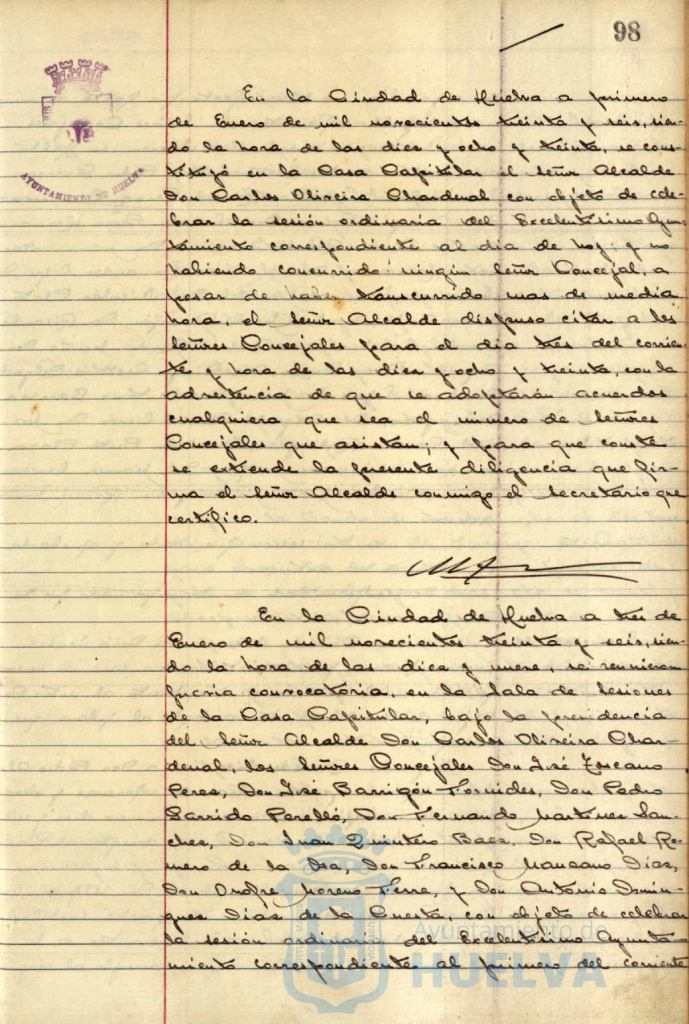 98
AYUNTAMIENTO DE HUELVA
En la Ciudad de Huelva a primero
de Enero de mil novecientos treinta y seis, sien-
do la hora de las diez y ocho y treinta, se cons-
tituyó en la Casa Capitular el Señor Alcalde
Don Carlos Oliveira Chardenal con objeto de cele-
brar la sesión ordinaria del Excelentísimo Ayun-
tamiento correspondiente al día de hoy; y no
habiendo concurrido ningún Señor Concejal, a
pesar de haber transcurrido mas de media
hora, el Señor Alcalde dispuso citar a los
Señores Concejales para el día tres del corrien-
te y hora de las diez y ocho y treinta, con la
advertencia de que se adoptarán acuerdos
cualquiera que sea el número de Señores
Concejales que asistan; y para que conste
se extiende la presente diligencia que fir-
ma el Señor Alcalde conmigo el Secretario que
certifico.
En la Ciudad de Huelva a tres de
Enero de mil novecientos treinta y seis, sien-
do la hora de las diez y nueve, se reunieron
previa convocatoria, en la Sala de Sesiones
de la Casa Capitular, bajo la presidencia
del Señor Alcalde Don Carlos Oliveira Char-
denal, los Señores Concejales Don José Toscano
Peres, Don José Barrigón Fornides, Don Pedro
Garrido Perelló, Don Fernando Martinez San-
chez, Don Juan Quintero Baez, Don Rafael Ro-
mero de la Osa, Don Francisco Manzano Días,
Don Onofre Moreno Ferre, y Don Antonio Domin-
guez Dias de la Cuesta, con objeto de celebrar
la sesión ordinaria del Excelentísimo Ayunta-
miento correspondiente al primero del corriente
Ayuntamiento de
HUELVA